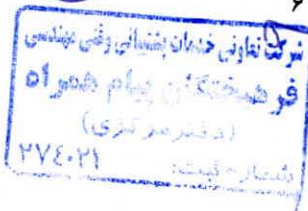 شرکت تعاونی خدمات پشتیبانی وفنی مهندسی
فرهیختگان پیام همراه
(دفتر مرکزی)
شماره ثبت: ۲۷۴۰۲۱